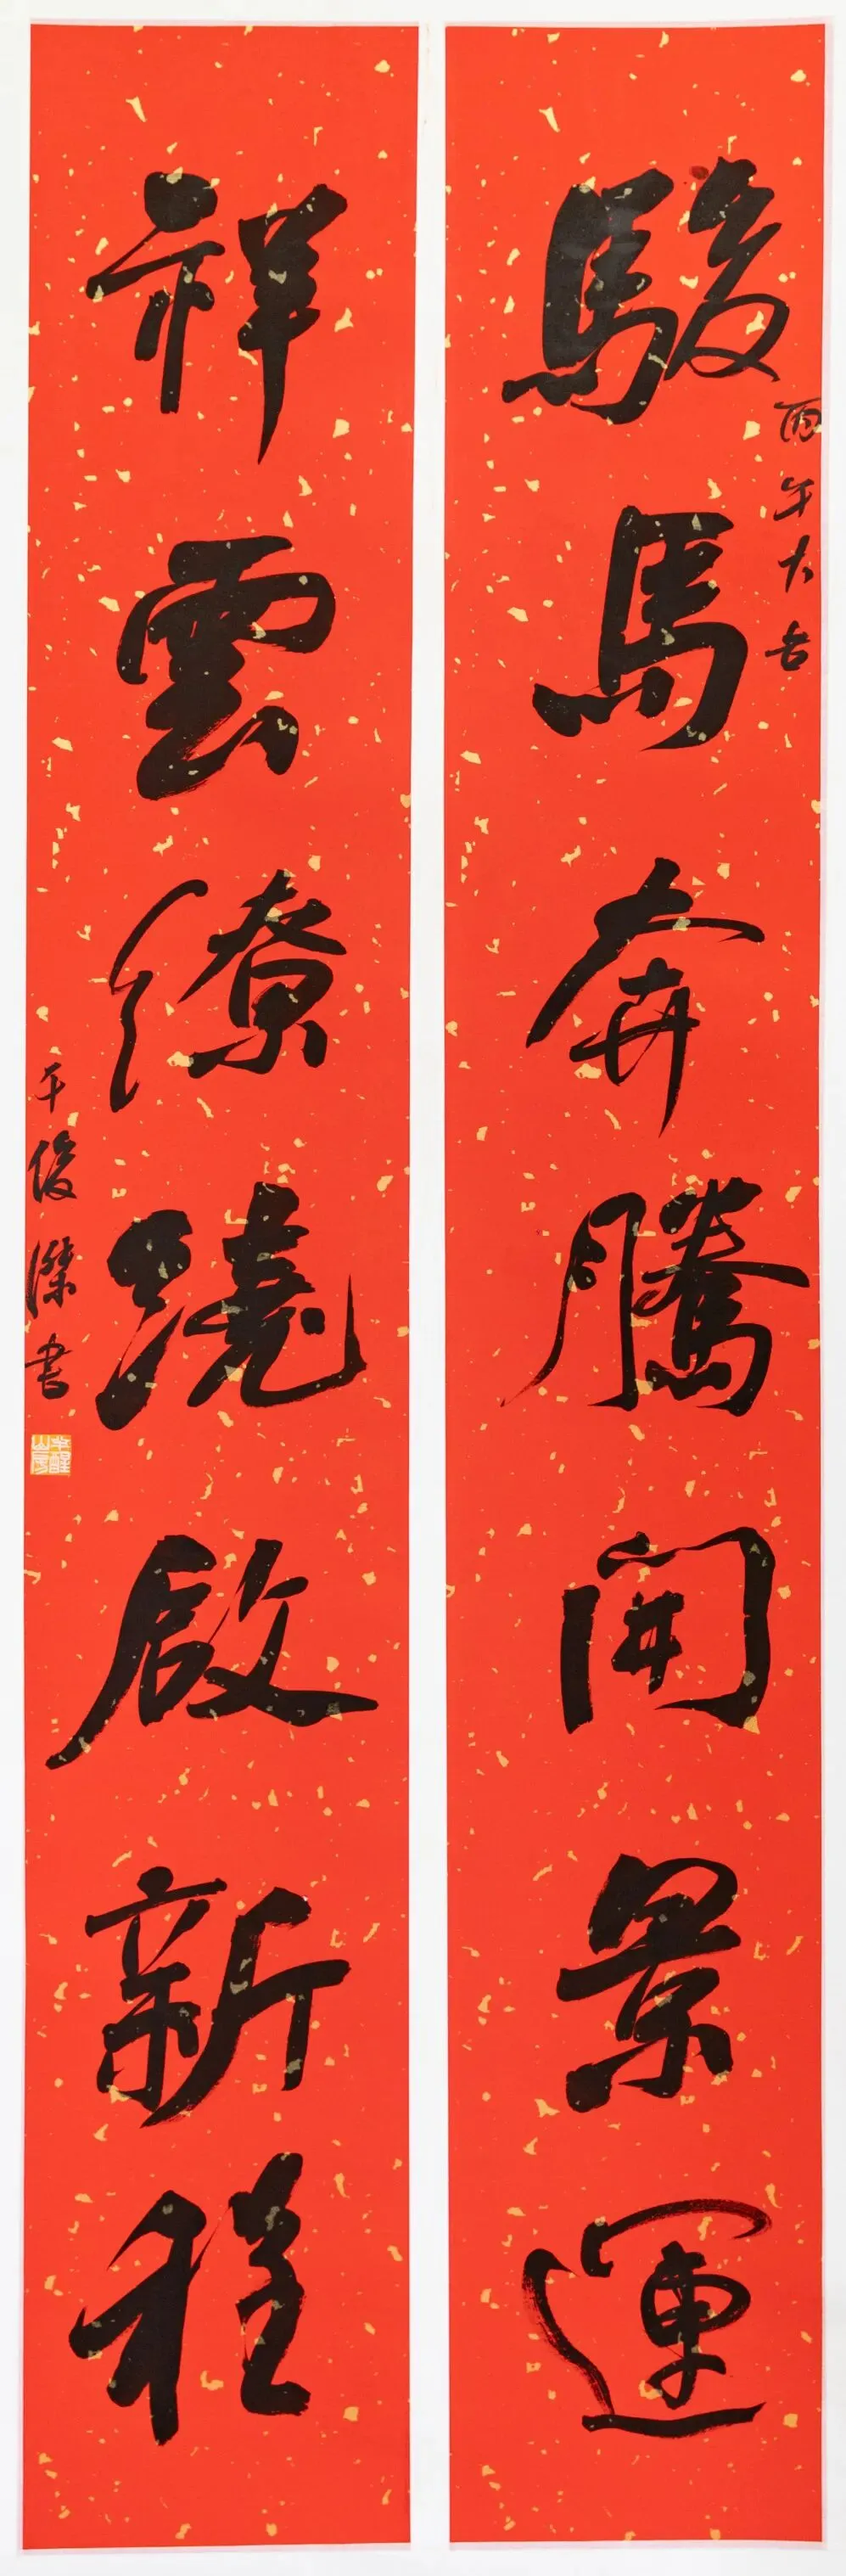 駿馬奔騰開景運
丙午大吉
祥雲繚繞啟新程
于俊傑書
半醒山房